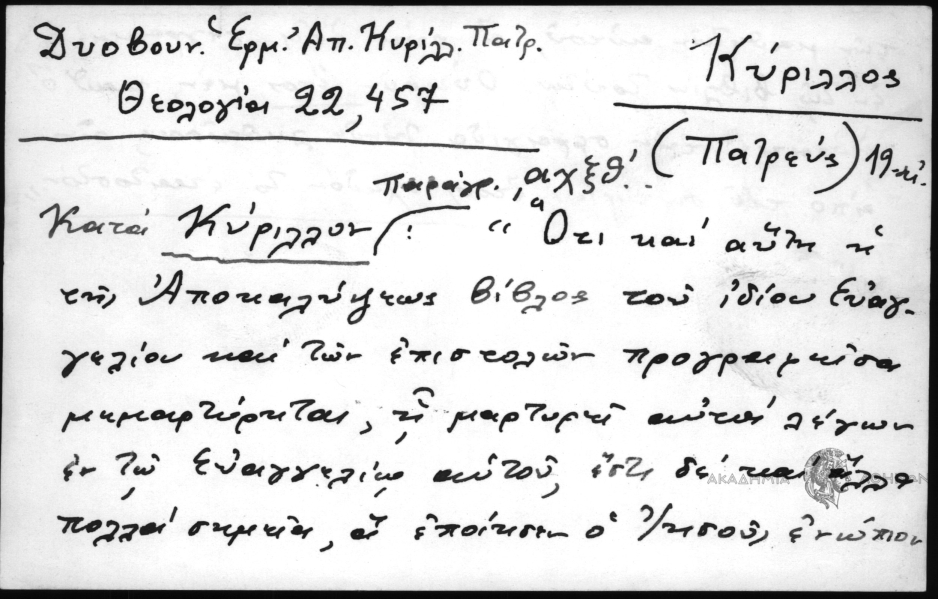 Δυοβουν. Ἑρμ. Ἀπ. Κυρίλλ. Πατρ.
Θεολογία 22, 457
Κύριλλος
(Πατρεύς) 19.
παράγρ., αχξθ΄.
Κατά Κύριλλον : "Ὅτι καί αὕτη ἡ
τῆς Ἀποκαλύψεως βίβλος τοῦ ἰδίου Εὐαγ-
γελίου καί τῶν ἐπιστολῶν προγραμμεῖσα
μεμαρτύρηται, ᾗ μαρτυρεῖ αὐτός λέγων
ἐν τῷ Εὐαγγελίῳ αὐτοῦ, ἔστι δέ καί ἄλλα
πολλά σημεῖα, ἅ ἐποίησεν ὁ Ἰησοῦς ἐνώπιον
ΑΚΑΔΗΜΙΑ